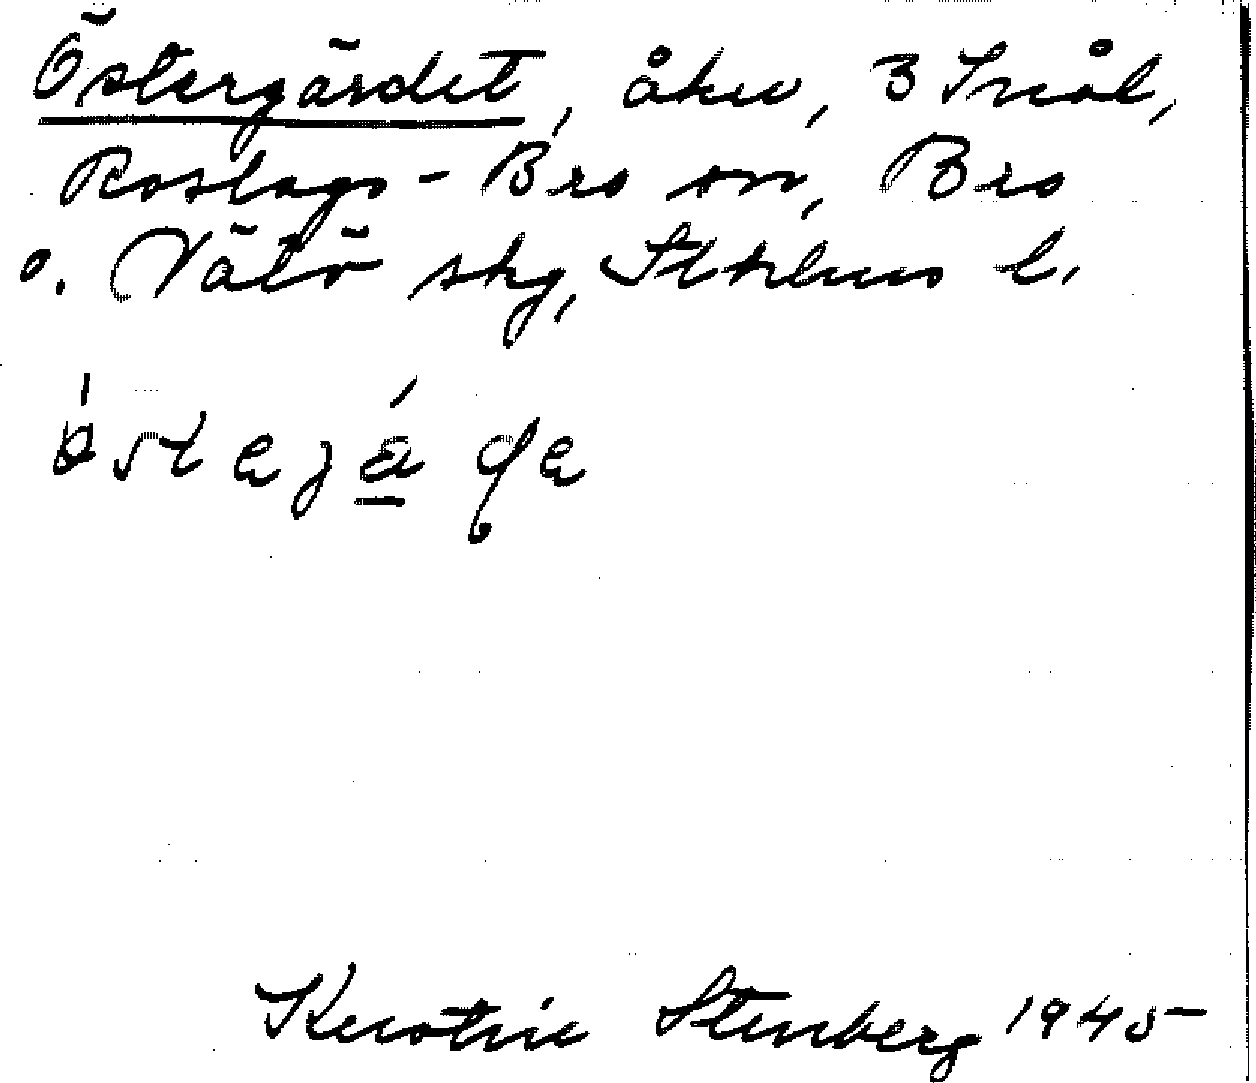 Östergärdet, åker, 3 Snål,
Roslags-Bro sn, Bro
o. Vätö skg, Sthlms l.
Kerstin Stenberg 1945